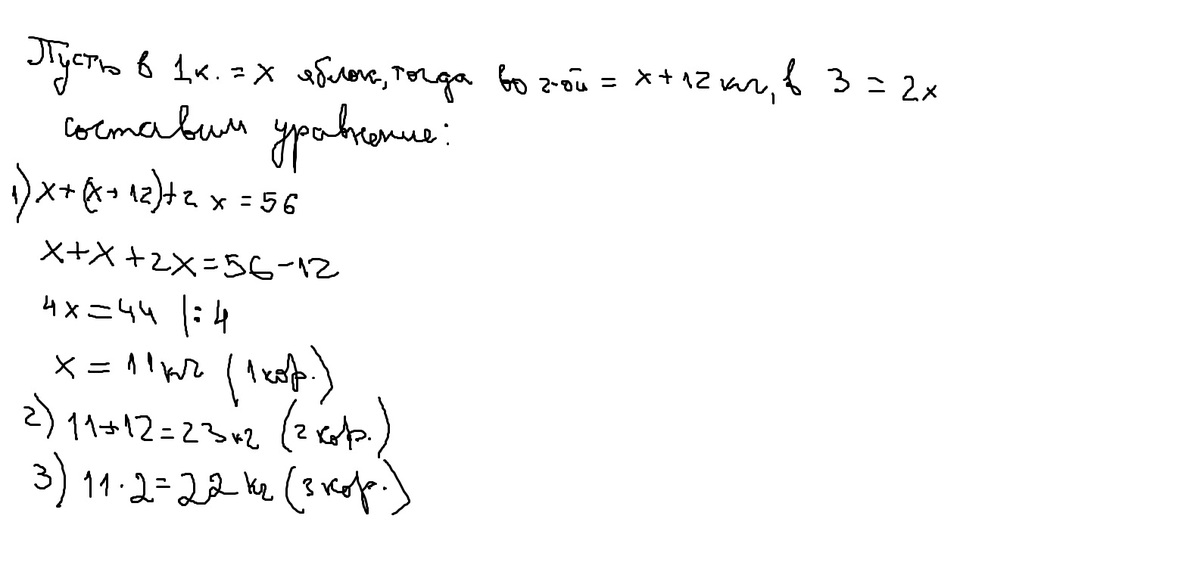 Пусть в 1к. = x яблок, тогда во 2-ой = x + 12 кг, в 3 = 2x
составим уравнение:
1) x + (x + 12) + 2x = 56
x + x + 2x = 56 - 12
4x = 44 |: 4
x = 11 кг (1 кор.)
2) 11 + 12 = 23 кг (2 кор.)
3) 11 · 2 = 22 кг (3 кор.)